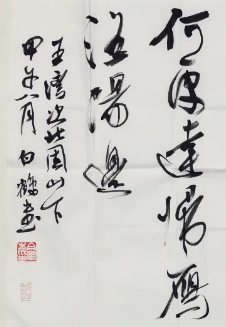 何處達歸雁
洛陽邊
王灣次北固山下
甲午八月 白鶴書